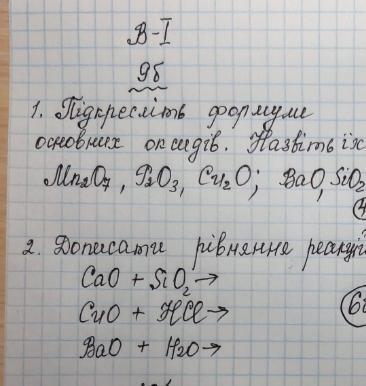 В-І
9б
1. Підкресліть формули
основних оксидів. Назвіть їх
Mn₂O₇, P₂O₃, Cu₂O; BaO, SiO₂
2. Дописати рівняння реакцій
CaO + SiO₂→
CuO + HCl→
BaO + H₂O→